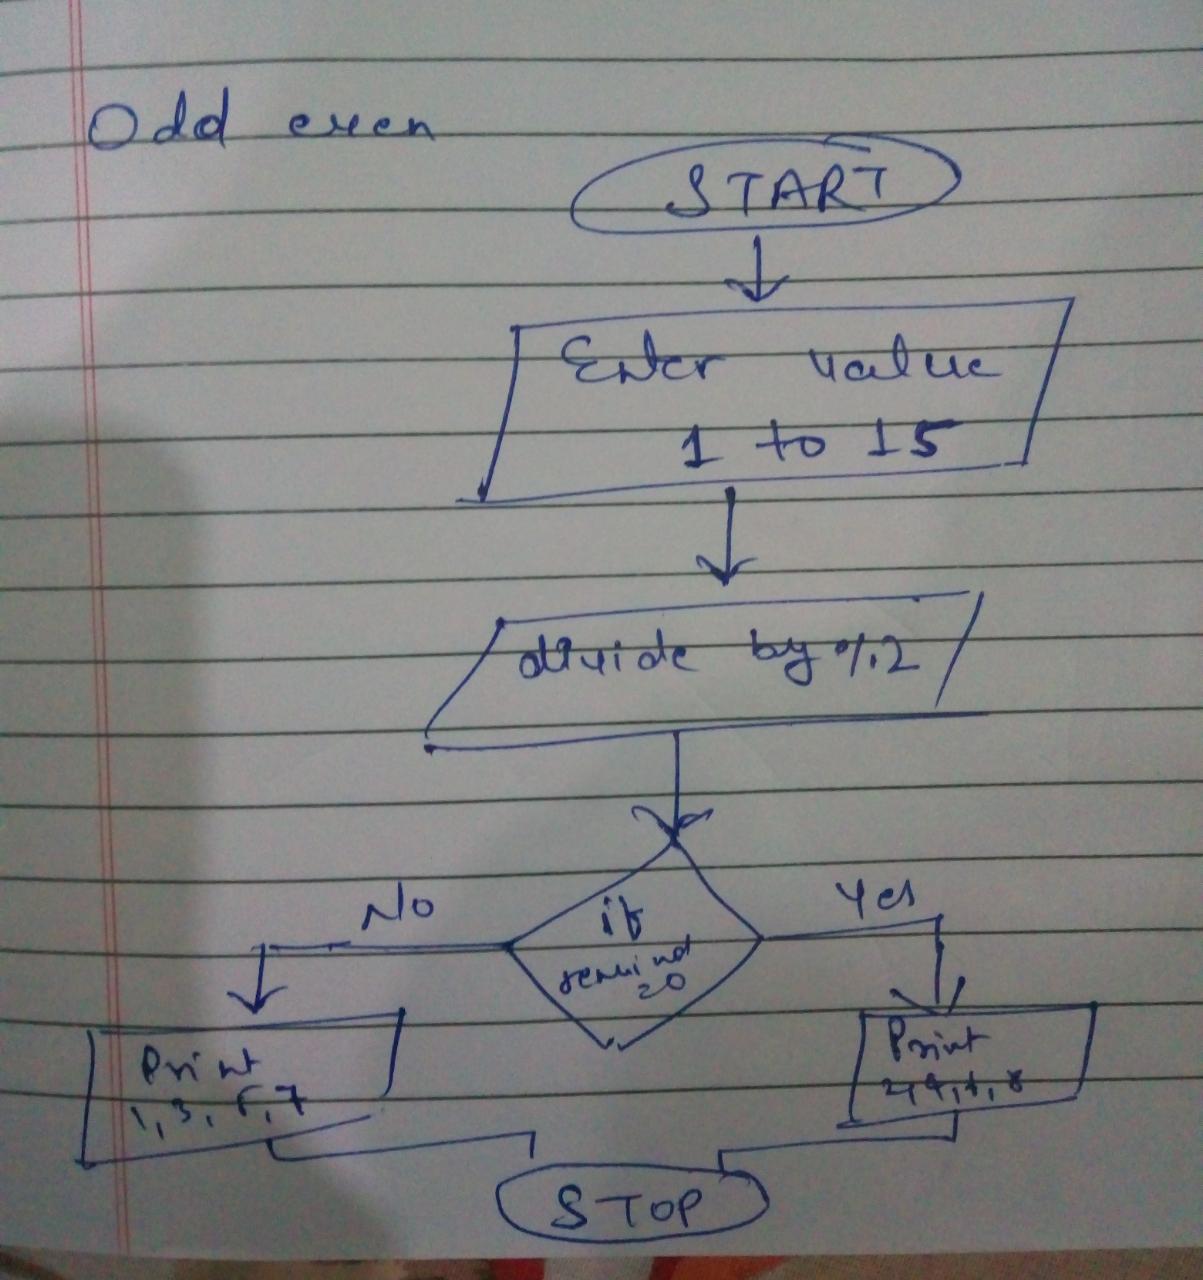 Odd even
START
Enter value
1 to 15
divide by %2
No
Yes
if
remind
=0
Print
1, 3, 5, 7
Print
2, 4, 6, 8
STOP